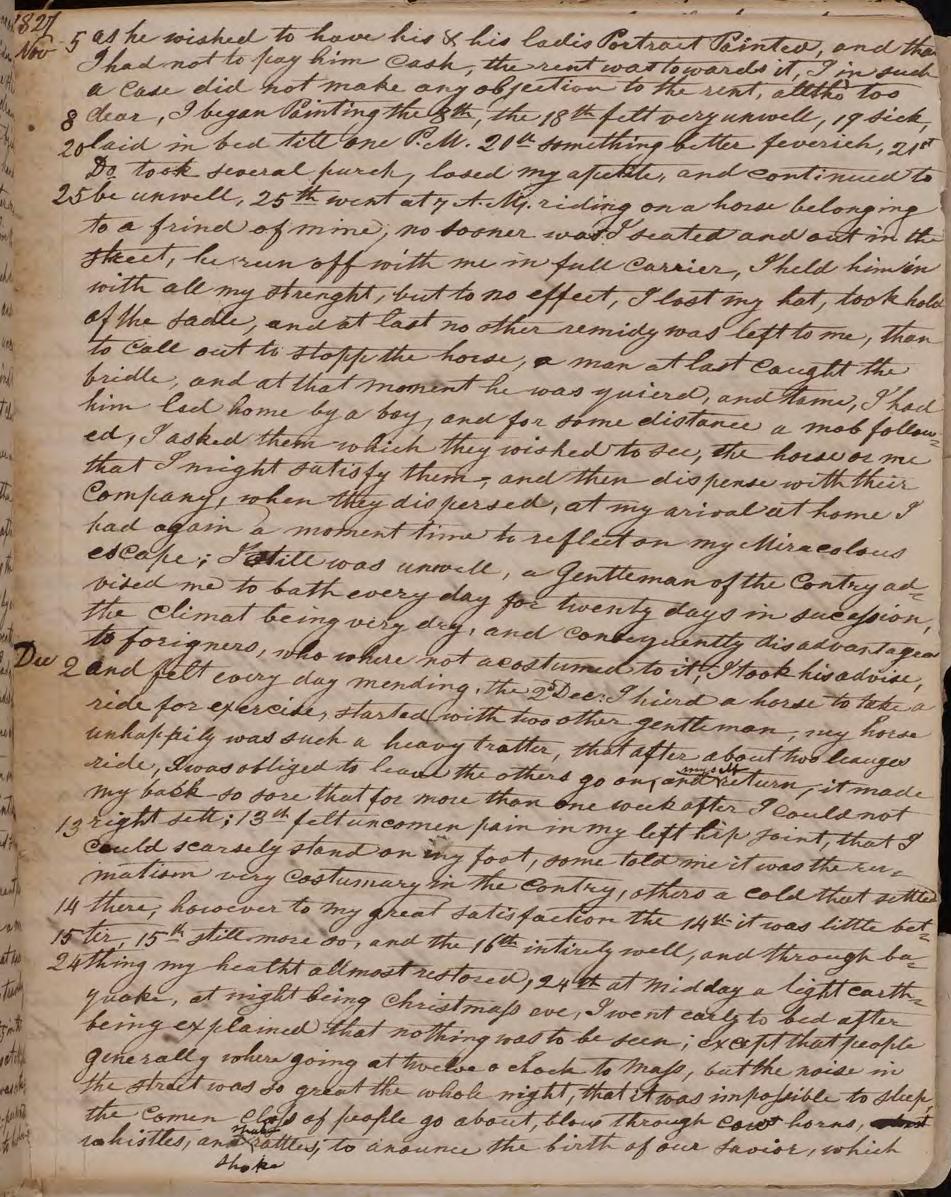 1827
Nov 5 as he wished to have his & his ladis Portrait Painted, and that
I had not to pay him Cash, the rent was towards it, I in such
a case did not make any objection to the rent, altho' too
8 dear, I began Painting the 8th, the 18th felt very unwell, 19 sick,
20 laid in bed till one P.M. 20th something better feverich, 21st
Do. took several purch, losed my apetite, and continued to
25 be unwell, 25th went at 7 A.M. riding on a horse belonging
to a frind of mine, no sooner was I seated and out in the
street, he run off with me in full carrier, I held him in
with all my strenght, but to no effect, I lost my hat, took hold
of the sadle, and at last no other remidy was left to me, than
to call out to stopp the horse, a man at last caught the
bridle, and at that moment he was quierd, and tame, I had
him led home by a boy, and for some distance a mob follow=
ed, I asked them which they wished to see, the horse or me
that I might satisfy them, and then dispense with their
Company, when they dispersed, at my arival at home I
had again a moment time to reflect on my Miracolous
escape; I still was unwell, a Gentleman of the Contry ad=
vised me to bath every day for twenty days in sucession,
the Climat being very dry, and consequently disadvantageous
to forigners, who where not acostumed to it; I took his advise,
Dec 2 and felt every day mending, the 2d Decr. I hierd a horse to take a
ride for exercise, started with two other gentleman, my horse
unhappily was such a heavy tratter, that after about two leauges
ride, I was obliged to leave the others go on, and myself return, it made
my back so sore that for more than one week after I could not
13 right sett; 13th felt uncomen pain in my left hip joint, that I
could scarsely stand on my foot, some told me it was the ru=
matism very costumary in the contry, others a cold that settled
14 there; however to my great satisfaction the 14th it was little bet=
15 ter, 15th still more so, and the 16th intirely well, and through ba=
24 thing my healtht allmost restored, 24th at Midday a light earth=
quake, at night being Christmass eve, I went early to bed after
being explained that nothing was to be seen; except that people
generally where going at twelve o clock to Mass, but the noise in
the street was so great the whole night, that it was impossible to sleep,
the comen class of people go about, blow through cow horns,
whistles, and shake rattles, to anounce the birth of our Savior, which